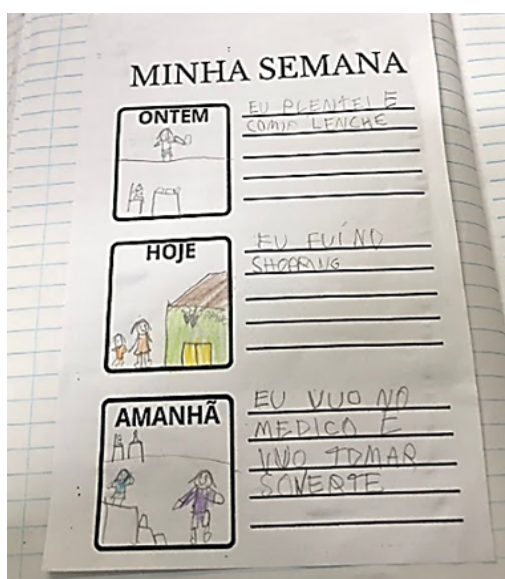 MINHA SEMANA
ONTEM
EU PLENTEI E
COMIO LENCHE
HOJE
EU FUÍ NO
SHOPRING
AMANHÃ
EU VUO NO
MEDICO E
VUO TOMAR
SOVERTE